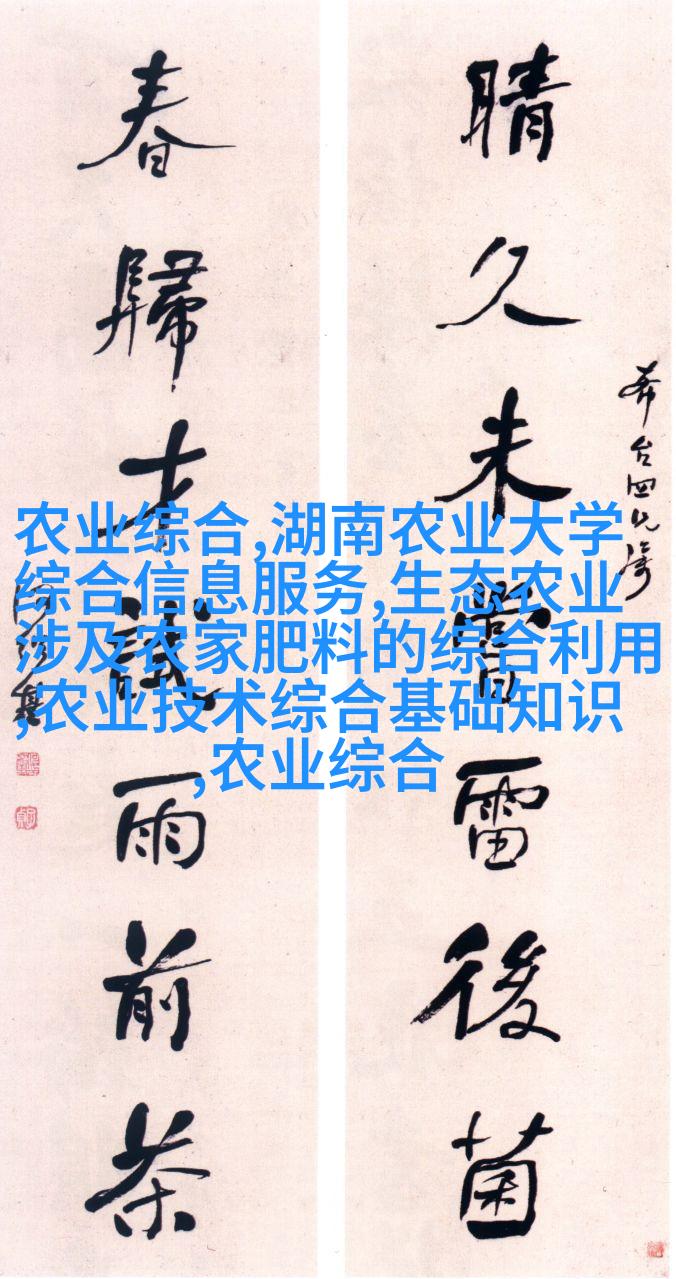 晴久未嘗雷後菌
春歸才識雨前茶
农业综合,湖南农业大学
综合信息服务,生态农业
涉及农家肥料的综合利用
,农业技术综合基础知识
,农业综合